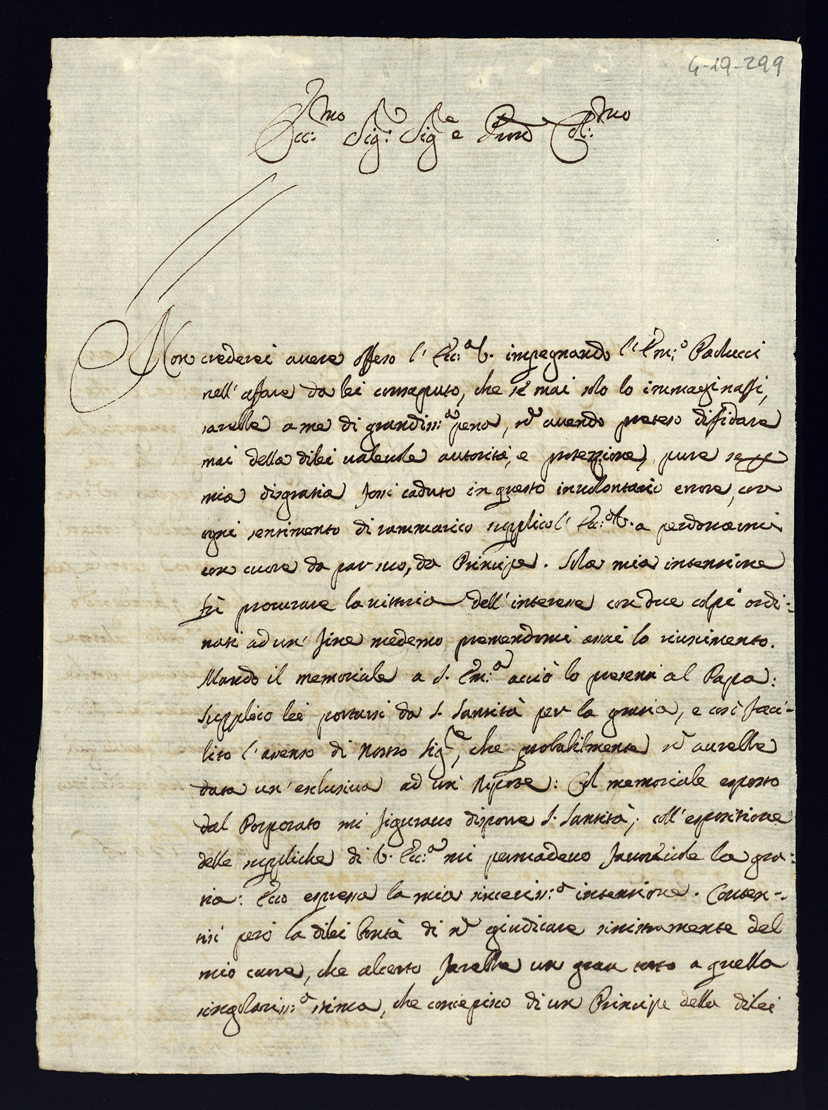 4-19-299
Ecc:mo Sig:r Sig:re e Pron Col:mo
Non crederei avere offeso l'Ecc:a V. impegnando l'Em:o Paolucci
nell'affare da lei consaputo, che se mai solo lo immaginassi,
sarebbe a me di grandiss:a pena, nō avendo preteso diffidare
mai della dilei valevole autorità, e protezzione, pure se per
mia disgratia fossi caduto in questo involontario errore, con
ogni sentimento di rammarico supplico l'Ecc:a V. a perdonarmi
con cuore da par suo, da Principe. Sola mia intenzione
fù procurare la vittoria dell'interesse con due colpi ordi-
nati ad un' fine medemo premendomi assai lo riuscimento.
Mando il memoriale a S. Em:a acciò lo presenti al Papa:
supplico lei portarsi da S. Santità per la gratia, e così faci-
lito l'assenso di Nostro Sig:re, che probabilmente nō avrebbe
data un'esclusiva ad un' Nipote: Col memoriale esposto
dal Porporato mi figuravo disporre S. Santità; coll'espositione
delle suppliche di V. Ecc:a mi persadevo favorevole la gra-
tia: Ecco espressa la mia sinceriss:a intenzione. Conten-
tisi però la dilei bontà di nō giudicare sinistramente del
mio cuore, che al certo farebbe un gran torto a quella
singolariss:a stima, che concepisco di un Principe della dilei